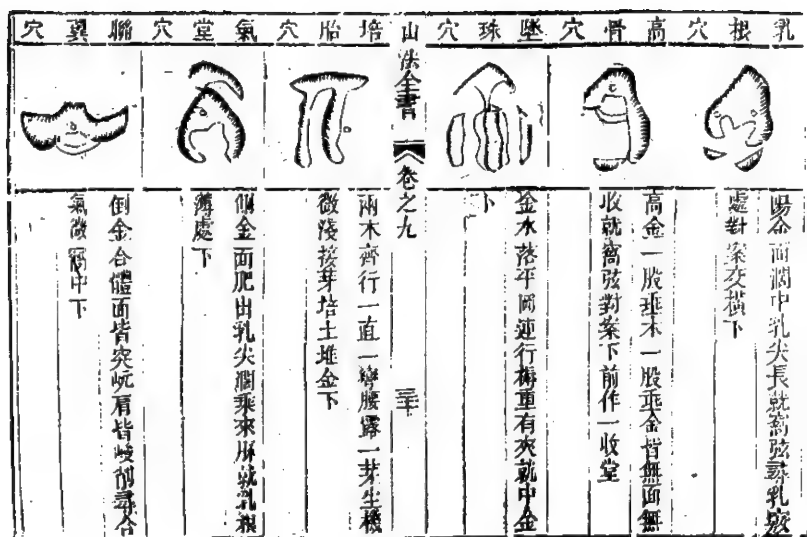 乳根穴
陽金面濶中乳尖長就窩弦尋乳
處對案交橫下
高骨穴
高金一股垂木一股垂金皆無面無
收就窩弦對案下前作一收堂
墜珠穴
金水落平岡連行梅重有夾就中金
下
山法全書
卷之九
三十
培胎穴
兩木齊行一直一彎腰露一芽生機
微淺接芽培土堆金下
氣堂穴
金面肥出乳尖濶乘來脉就乳根
薄處下
聯翼穴
倒金合體面皆突屼肩皆峻削尋合
氣微窩中下